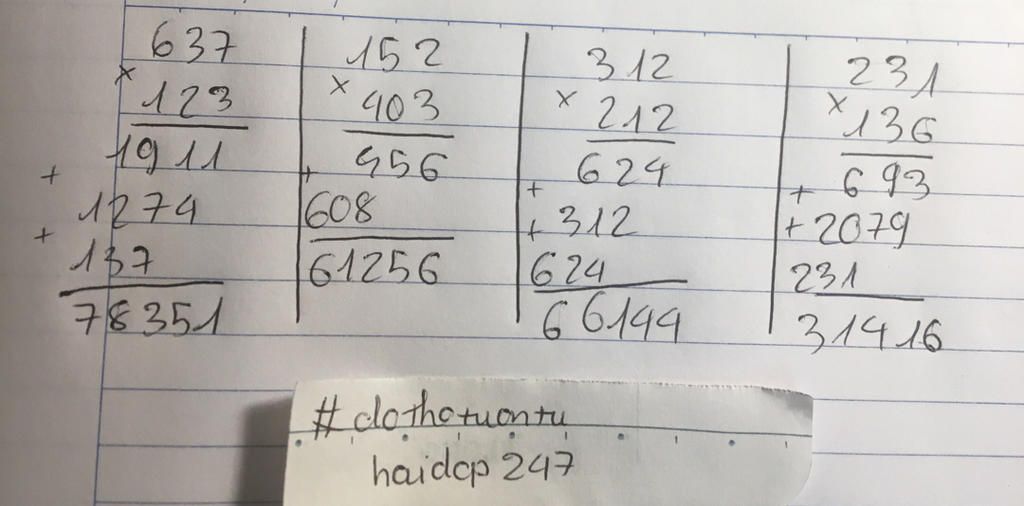 637
×
123
1911
+
1274
+
137
78351
152
×
403
456
+
608
61256
312
×
212
624
+
+ 312
624
66144
231
×
136
693
+
+ 2079
231
31416
#dothotuontu
haidcp 247